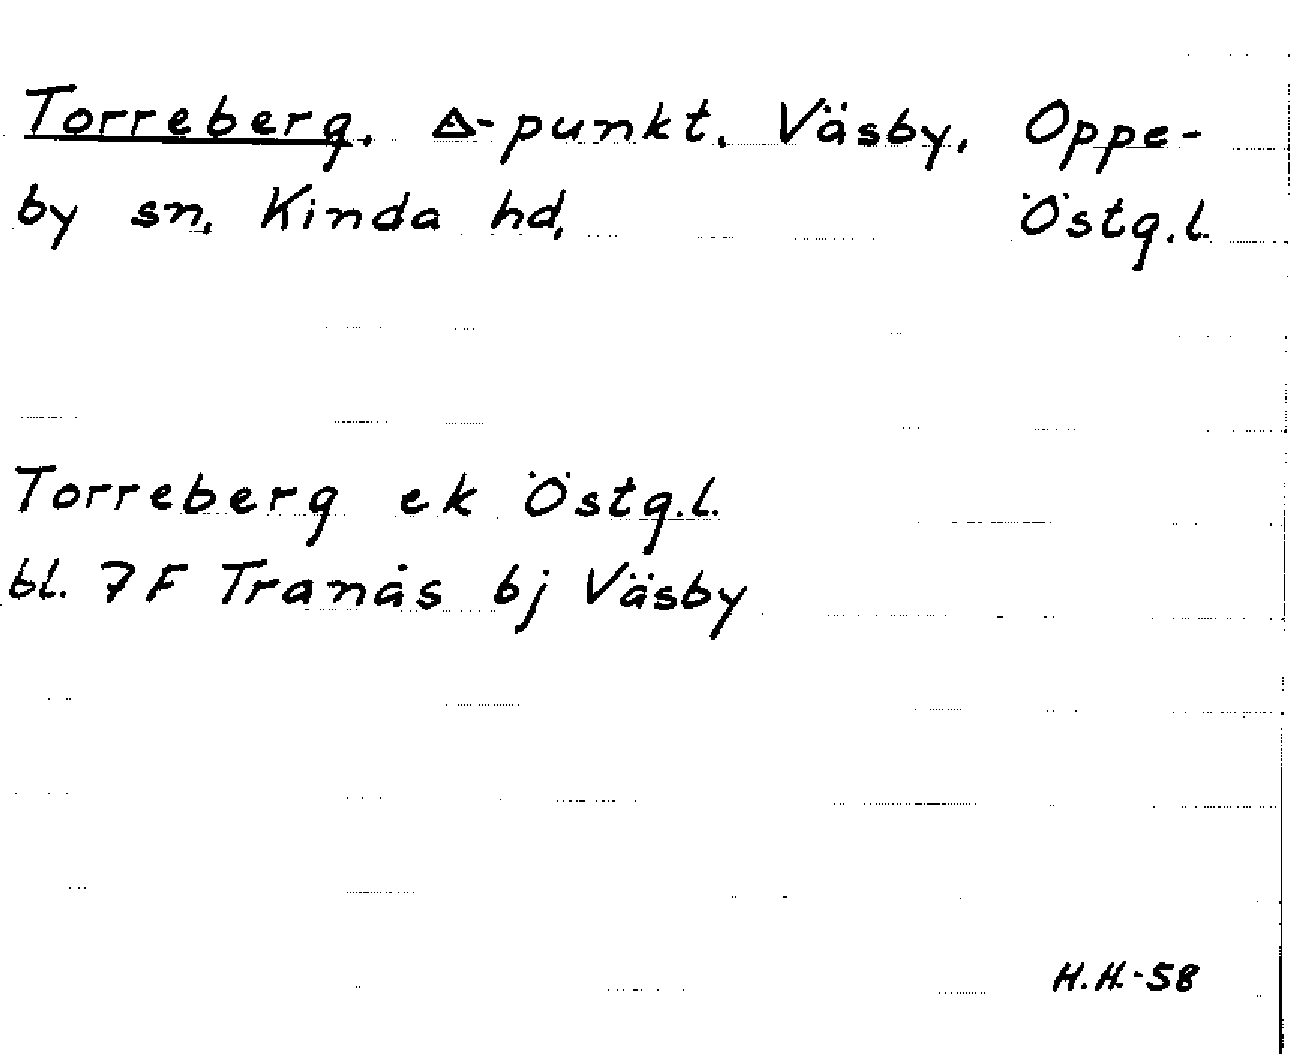 Torreberg. Δ-punkt. Väsby, Oppe-
by sn. Kinda hd. Östg.l.
Torreberg ek Östg.l.
bl. 7F Tranås bj Väsby
H.H.-58